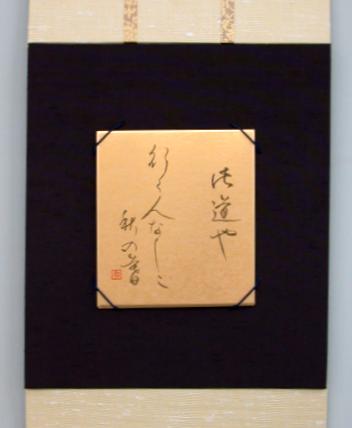 此道や
行く人なしに
秋の暮